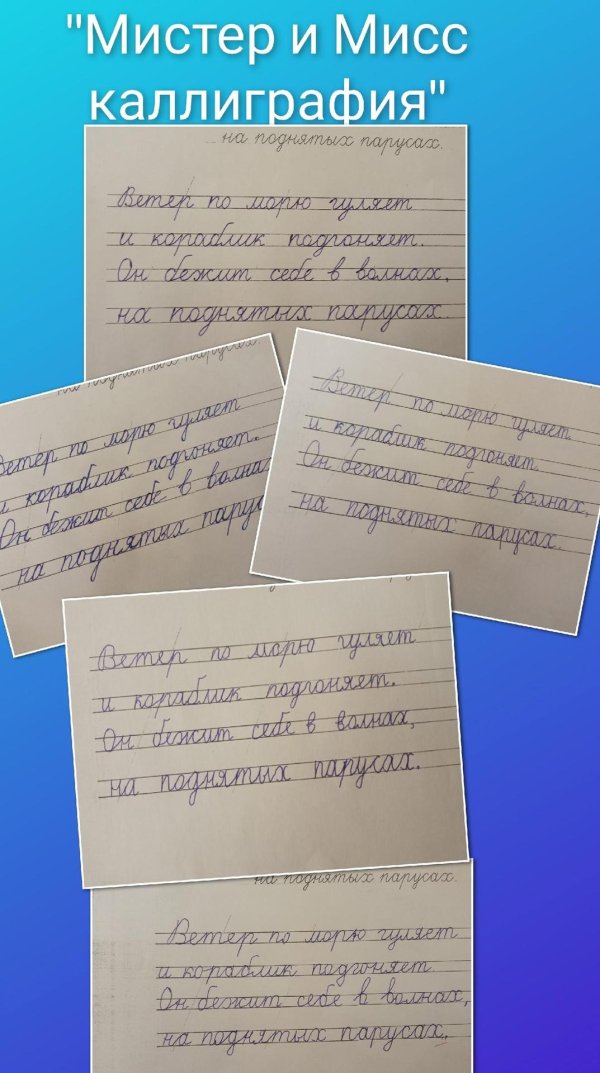 "Мистер и Мисс
каллиграфия"
на поднятых парусах.
Ветер по морю гуляет
и кораблик подгоняет.
Он бежит себе в волнах,
на поднятых парусах
на поднятых парусах.
Ветер по морю гуляет
и кораблик подгоняет.
Он бежит себе в волна
на поднятых парус
Ветер по морю гуляет
и кораблик подгоняет
Он бежит себе в волнах,
на поднятых парусах.
Ветер по морю гуляет
и кораблик подгоняет.
Он бежит себе в волнах,
на поднятых парусах.
на поднятых парусах.
Ветер по морю гуляет
и кораблик подгоняет.
Он бежит себе в волнах,
на поднятых парусах.